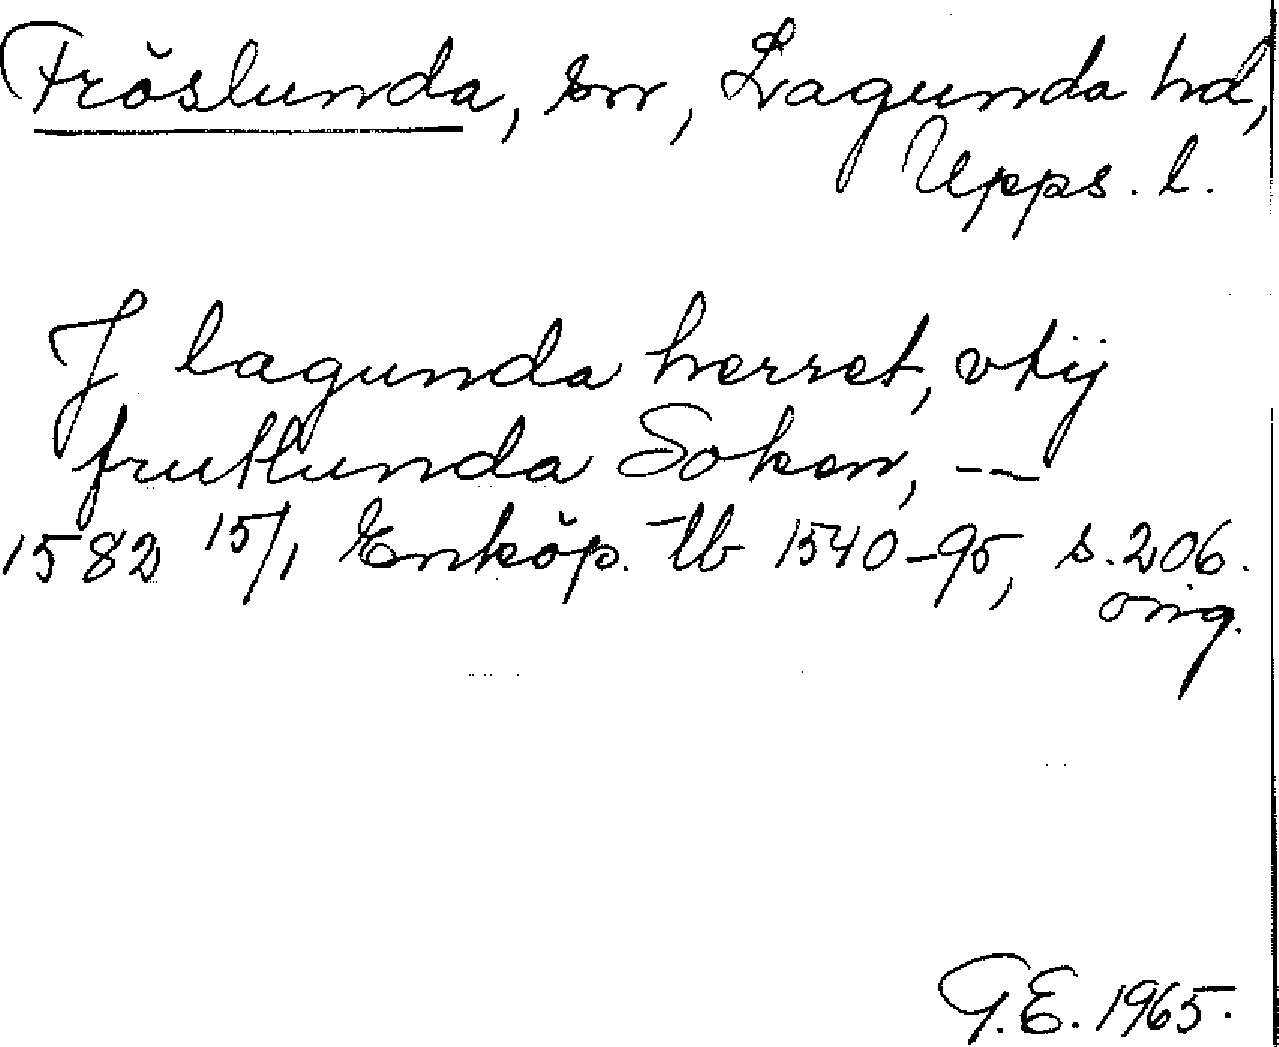 Fröslunda, sn, Lagunda hd,
Upps. l.
J lagunda herret, vtij
fruttunda Soken, --
1582 15/1 Enköp. tb 1540-95, s. 206.
orig.
G.E. 1965.